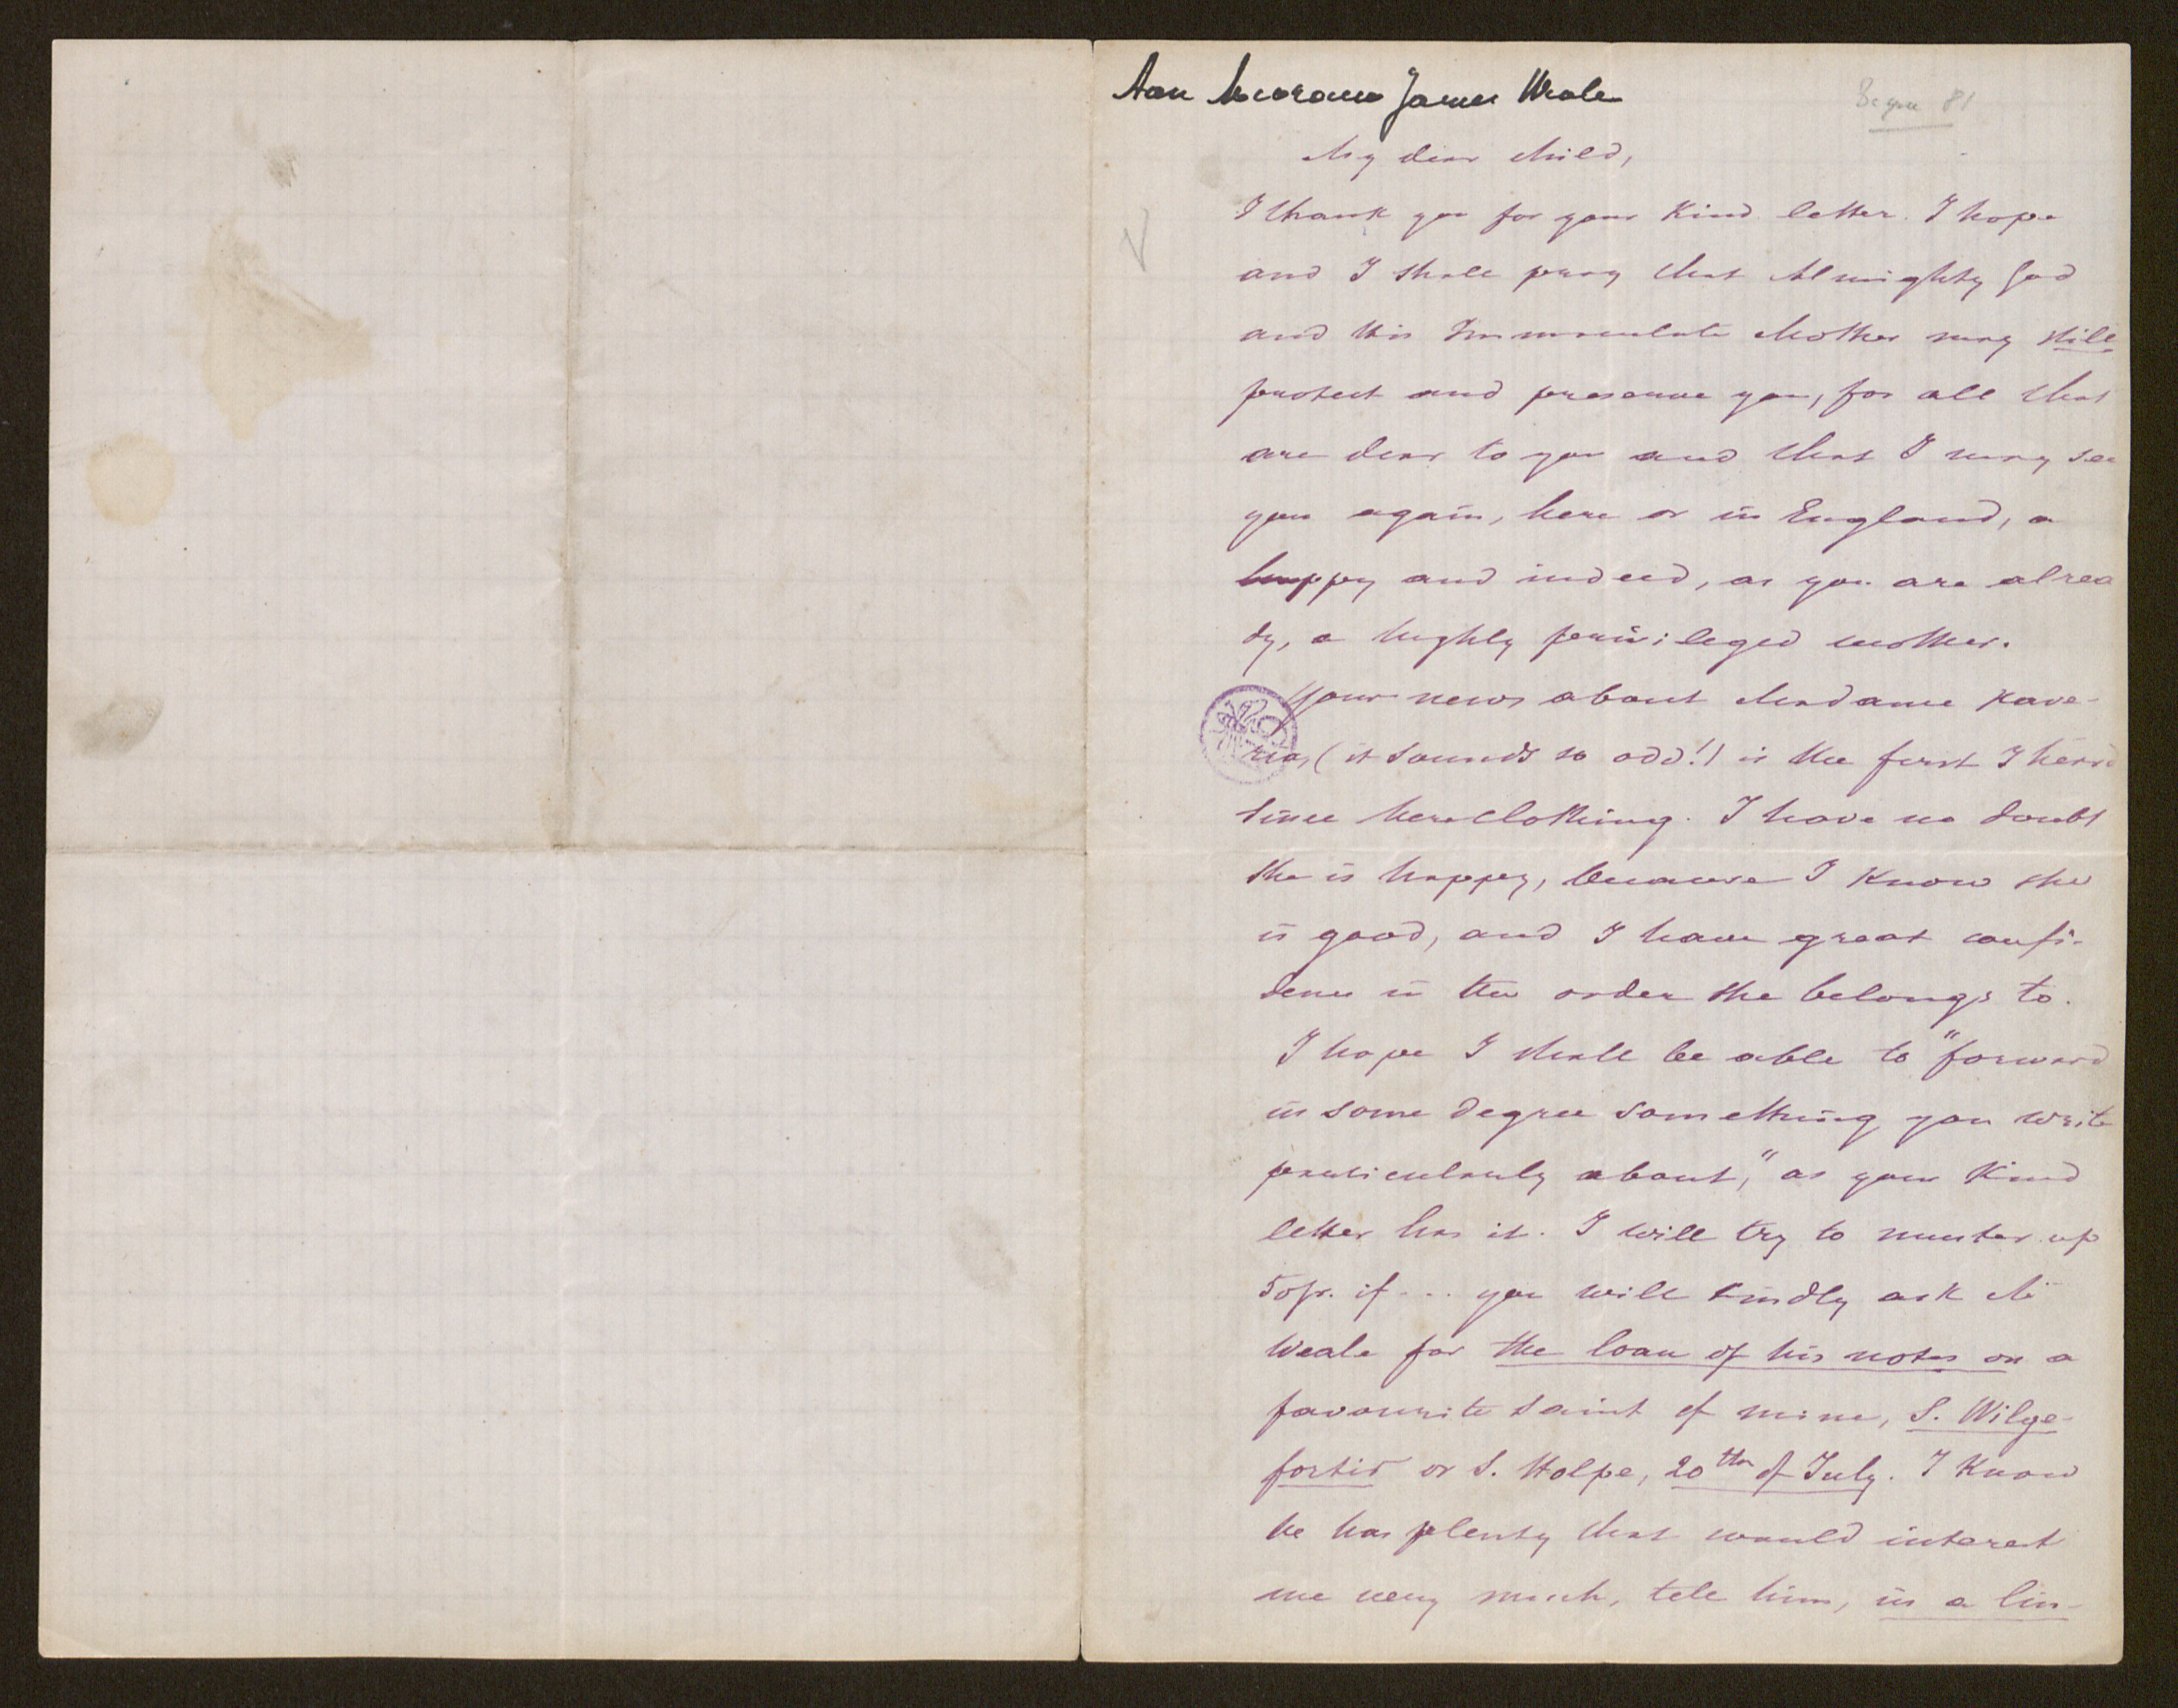 Aan Mevrouw James Weale
My dear Child,
I thank you for your kind letter. I hope
and I shall pray that Almighty God
and His Immaculate Mother may still
protect and preserve you, for all that
are dear to you and that I may see
you again, here or in England, a
happy and indeed, as you are alrea
dy, a highly privileged mother.
Your news about Madame Xave-
ria, (it sounds so odd!) is the first I heard
since her clothing. I have no doubt
she is happy, because I know she
is good, and I have great confi-
dence in the order she belongs to.
I hope I shall be able to "forward
in some degree something you write
particularly about," as your kind
letter has it. I will try to muster up
50fr. if ... you will kindly ask Mr
Weale for the loan of his notes on a
favourite saint of mine, S. Wilge-
fortis or S. Holpe, 20th of July. I know
he has plenty that would interest
me very much, tell him, in a lin-